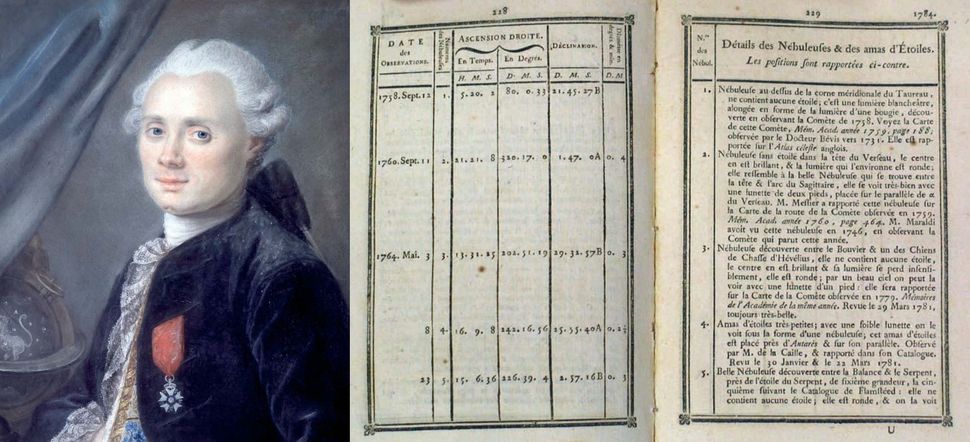 228
DATE des OBSERVATIONS. | Numéros des Nébuleuses. | ASCENSION DROITE. | DÉCLINAISON. | Diamètre en degrés & min.
En Temps. | En Degrés.
H. M. S. | D. M. S. | D. M. S. | D. M.
1758. Sept. 12 | 1. | 5. 20. 2 | 80. 0. 33 | 21. 45. 27 B
1760. Sept. 11 | 2. | 21. 21. 8 | 320. 17. 0 | 1. 47. 0 A | 0. 4
1764. Mai. 3 | 3. | 13. 31. 25 | 202. 51. 19 | 29. 32. 57 B | 0. 3
8 | 4. | 16. 9. 8 | 242. 16. 56 | 25. 55. 40 A | 0. 2½
23 | 5. | 15. 6. 36 | 226. 39. 4 | 2. 57. 16 B | 0. 3
229 1784.
N.os des Nébul. | Détails des Nébuleuses & des amas d'Étoiles.
Les positions sont rapportées ci-contre.
1. Nébuleuse au dessus de la corne méridionale du Taureau,
ne contient aucune étoile; c'est une lumière blancheâtre,
alongée en forme de la lumière d'une bougie, décou-
verte en observant la Comète de 1758. Voyez la Carte
de cette Comète, Mém. Acad. année 1759, page 188;
observée par le Docteur Bévis vers 1731. Elle est rap-
portée sur l'Atlas céleste anglois.
2. Nébuleuse sans étoile dans la tête du Verseau, le centre
en est brillant, & la lumière qui l'environne est ronde;
elle ressemble à la belle Nébuleuse qui se trouve entre
la tête & l'arc du Sagittaire, elle se voit très-bien avec
une lunette de deux pieds, placée sur le parallèle de α
du Verseau. M. Messier a rapporté cette nébuleuse sur
la Carte de la route de la Comète observée en 1759.
Mém. Acad. année 1760, page 464. M. Maraldi
avoit vu cette nébuleuse en 1746, en observant la
Comète qui parut cette année.
3. Nébuleuse découverte entre le Bouvier & un des Chiens
de Chasse d'Hévélius, elle ne contient aucune étoile,
le centre en est brillant & sa lumière se perd insensi-
blement, elle est ronde; par un beau ciel on peut la
voir avec une lunette d'un pied: elle sera rapportée
sur la Carte de la Comète observée en 1779. Mémoires
de l'Académie de la même année. Revue le 29 Mars 1781,
toujours très-belle.
4. Amas d'étoiles très-petites; avec une foible lunette on le
voit sous la forme d'une nébuleuse; cet amas d'étoiles
est placé près d'Antarès & sur son parallèle. Observé
par M. de la Caille, & rapporté dans son Catalogue.
Revu le 30 Janvier & le 22 Mars 1781.
5. Belle Nébuleuse découverte entre la Balance & le Serpent,
près de l'étoile du Serpent, de sixième grandeur, la cin-
quième suivant le Catalogue de Flamstéed: elle ne
contient aucune étoile; elle est ronde, & on la voit
U